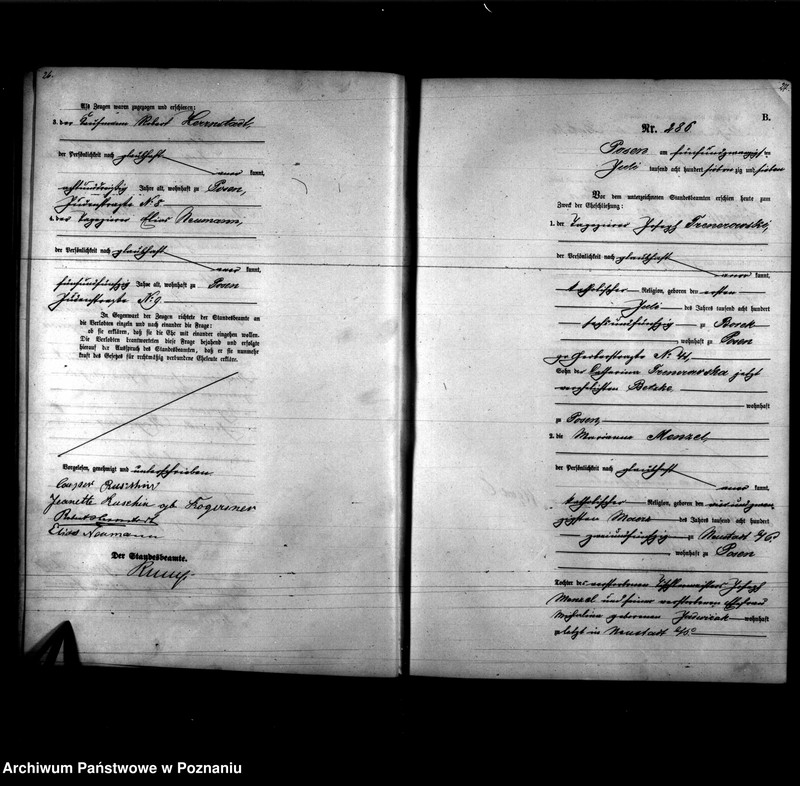 26.
Als Zeugen waren zugezogen und erschienen:
3. der Kaufmann Robert Herrnstadt,
der Persönlichkeit nach glaubhaft
kannt,
achtunddreißig Jahre alt, wohnhaft zu Posen,
Judenstraße N. 8.
4. der Tapezierer Elias Neumann,
der Persönlichkeit nach glaubhaft
kannt,
fünfundfünfzig Jahre alt, wohnhaft zu Posen
Judenstraße No 9.
In Gegenwart der Zeugen richtete der Standesbeamte an
die Verlobten einzeln und nach einander die Frage:
ob sie erklären, daß sie die Ehe mit einander eingehen wollen.
Die Verlobten beantworteten diese Frage bejahend und erfolgte
hierauf der Ausspruch des Standesbeamten, daß er sie nunmehr
kraft des Gesetzes für rechtmäßig verbundene Eheleute erkläre.
Vorgelesen, genehmigt und unterschrieben
Jeanette geb
Robert Herrnstadt
Elias Neumann
Der Standesbeamte.
27.
B.
Nr. 286
Posen am fünfundzwanzigsten
Juli tausend acht hundert siebenzig und sieben
Vor dem unterzeichneten Standesbeamten erschienen heute zum
Zweck der Eheschließung:
1. der Tapezierer Joseph
der Persönlichkeit nach glaubhaft
kannt,
katholischer Religion, geboren den ersten
Juli des Jahres tausend acht hundert
sechsundfünfzig zu Borek
, wohnhaft zu Posen
gr Gerberstraße No 41,
Sohn der Catharina jetzt
verehelichten
wohnhaft
zu Posen,
2. die Marianna Menzel,
der Persönlichkeit nach glaubhaft
kannt,
katholischer Religion, geboren den vierundzwan-
zigsten Maerz des Jahres tausend acht hundert
zweiundfünfzig zu Neustadt
, wohnhaft zu Posen
Tochter des verstorbenen Joseph
Menzel und seiner verstorbenen Ehefrau
Michalina geborenen wohnhaft
zuletzt in Neustadt
Archiwum Państwowe w Poznaniu